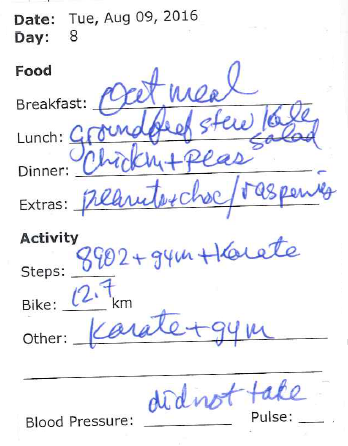 Date: Tue, Aug 09, 2016
Day: 8
Food
Breakfast: Oatmeal
Lunch: ground beef stew kale salad
Dinner: Chickn + Peas
Extras: peanuts + choc / raspenies
Activity
Steps: 8902 + gym + Karate
Bike: 12.7 km
Other: Karate + gym
did not take
Blood Pressure: Pulse: